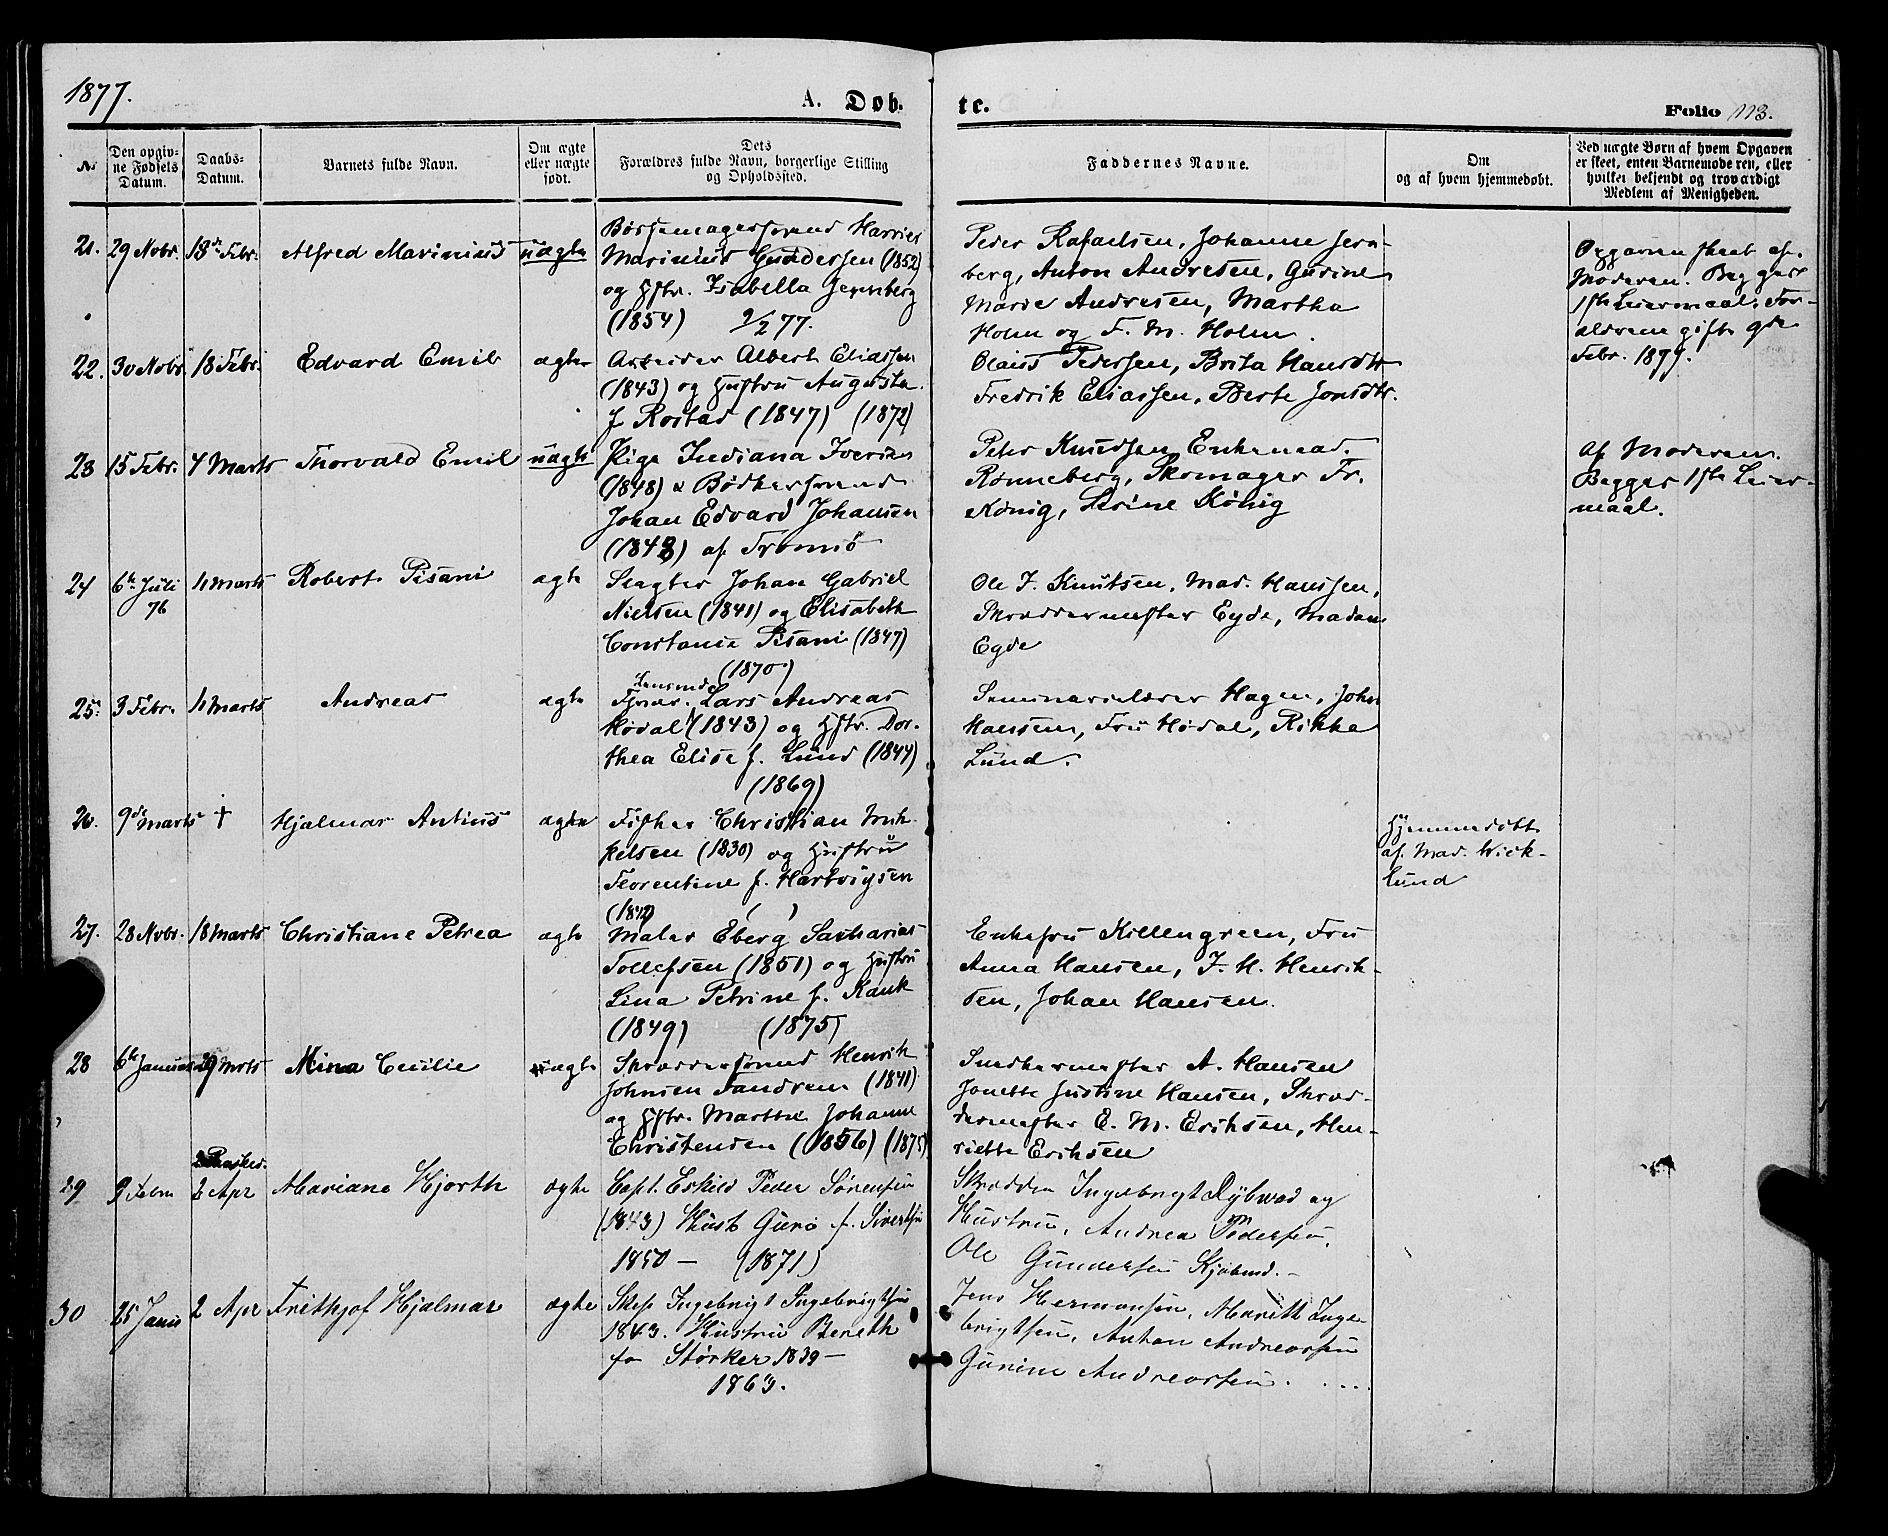 1877.
A. Døb-
te.
Folio 113.
No
Den opgiv-
ne Fødsels
Datum.
Daabs-
Datum.
Barnets fulde Navn.
Om ægte
eller uægte
født.
Dets
Forældres fulde Navn, borgerlige Stilling
og Opholdssted.
Faddernes Navne.
Om
og af hvem hjemmedøbt.
Ved uægte Børn af hvem Opgaven
er skeet, enten Barnemoderen, eller
hvilket bekjendt og troværdigt
Medlem af Menigheden.
21. 29 Novbr. 18de Febr. Alfred Marinius uægte
Børsemagersvend
Marinius Gundersen (1852)
og Hstr. Isabella
(1854) 9/2 77.
Peder Rafaelsen, Johanne Jern-
berg, Anton Andresen, Gurine
Marie Andresen, Martha
Holm og F. M. Holm.
Opgaven skeet af
Moderen. Begges
1ste Leiermaal. For-
ældrene gift 9de
Febr. 1877.
22. 30 Novbr. 18 Febr. Edvard Emil ægte
Arbeider Albert Eliassen
(1843) og Hustru Augusta
f. Rostad (1847) (1872)
Olaus Pedersen, Brita Hansdtr
Fredrik Eliassen, Berte Jonsdtr.
23 15 Febr. 4 Marts Thorvald Emil uægte
Pige Indiana Iversen
(1848) & Bødkersvend
Johan Edvard Johansen
(1848) af Tromsø
Peter Knudsen, Enkemad.
Rønneberg, Skomager Fr.
König, Serine König
Af Moderen.
Begges 1ste Leier-
maal.
24 6te Juli 76 11 Marts Robert Pisani ægte
Slagter Johan Gabriel
Nielsen (1841) og Elisabeth
Constance Pisani (1847)
(1870)
Ole J. Knutsen, Mad. Hanssen,
Skræddermester Eyde, Madam
Egde
25. 3 Febr. 11 Marts Andreas ægte
Lensmd
Lars Andreas
Hødal (1843) og Hstr. Dor-
thea Elise f. Lund (1844)
(1869)
Seminarielærer Hagen, John
Hanssen, Fru Hødal, Rikka
Lund.
26. 9de Marts † Hjalmar Antius ægte
Fisker Christian Mik-
kelsen (1830) og Hustru
Florentine f. Hartvigsen
(1842) ( )
Hjemmedøbt
af Mad. Wick-
lund
27. 28 Novbr. 18 Marts Christiane Petrea ægte
Maler Eberg Sacharias
Tollefsen (1851) og Hustru
Lina Petrine f. Kauk
(1849) (1875)
Enkefru Killengreen, Fru
Anna Hansen, J. H. Henrik-
sen, Johan Hansen.
28 6te Januar 29 Marts Mina Cecilie ægte
Skræddersvend Henrik
Johnsen Sandrem (1841)
og Hstr. Marthe Johanne
Christensen (1856) (1875)
Snedkermester A. Hansen
Jonette Justine Hansen, Skræd-
dermester E. M. Eriksen, Hen-
riette Eriksen
2 Paaskd.
29 9 Febru 2 Apr Mariane Hjorth ægte
Capt. Eskild Peder Sørensen
(1843) Hust Guro f. Sivertsen
1850 — (1871)
Skrædder Ingebrigt Rybwad og
Hustru, Andrea Pedersen,
Ole Gundersen Kjøbmd. –
30 25 Janu 2 Apr Frithjof Hjalmar ægte
Skip. Ingebrigt Ingebrigtsen
1843. Hustru Bereth
fø Størker 1839 –
1863.
Jens Hermansen, Marith Inge-
brigtsen, Anton Andreassen
Gurine Andreassen.